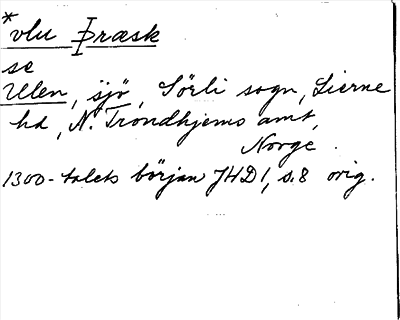 *vlu Þræsk
se
Ulen, sjö, Sörli sogn, Lierne
hd, N. Trondhjems amt,
Norge.
1300-talets början JHD 1, s. 8 orig.